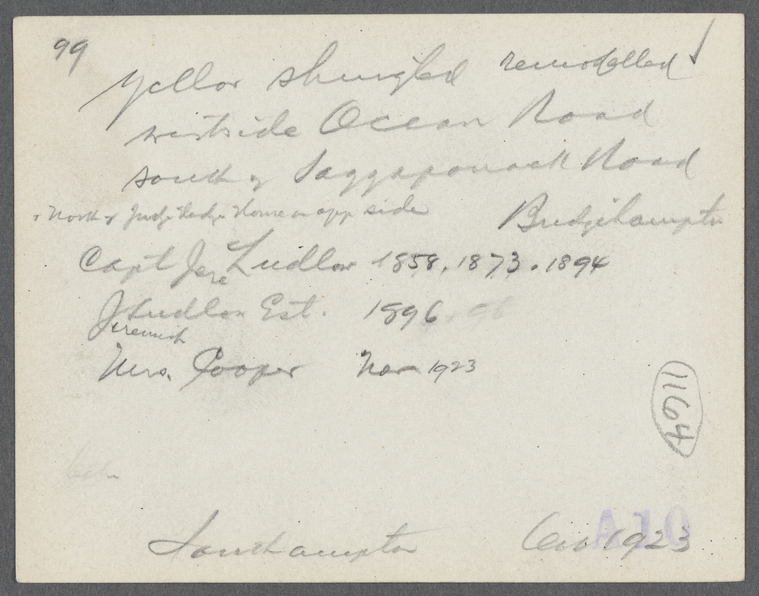 99
Yellow shingled remodelled
westside Ocean Road
south of Saggaponack Road
North of Judge Hedges Home on opp side
Bridgehampton
Capt Jere Ludlow 1858, 1873, 1894
J Ludlow Est. 1896
Jeremiah
Mrs. Cooper Nov 1923
1164
A10
Southampton 1923